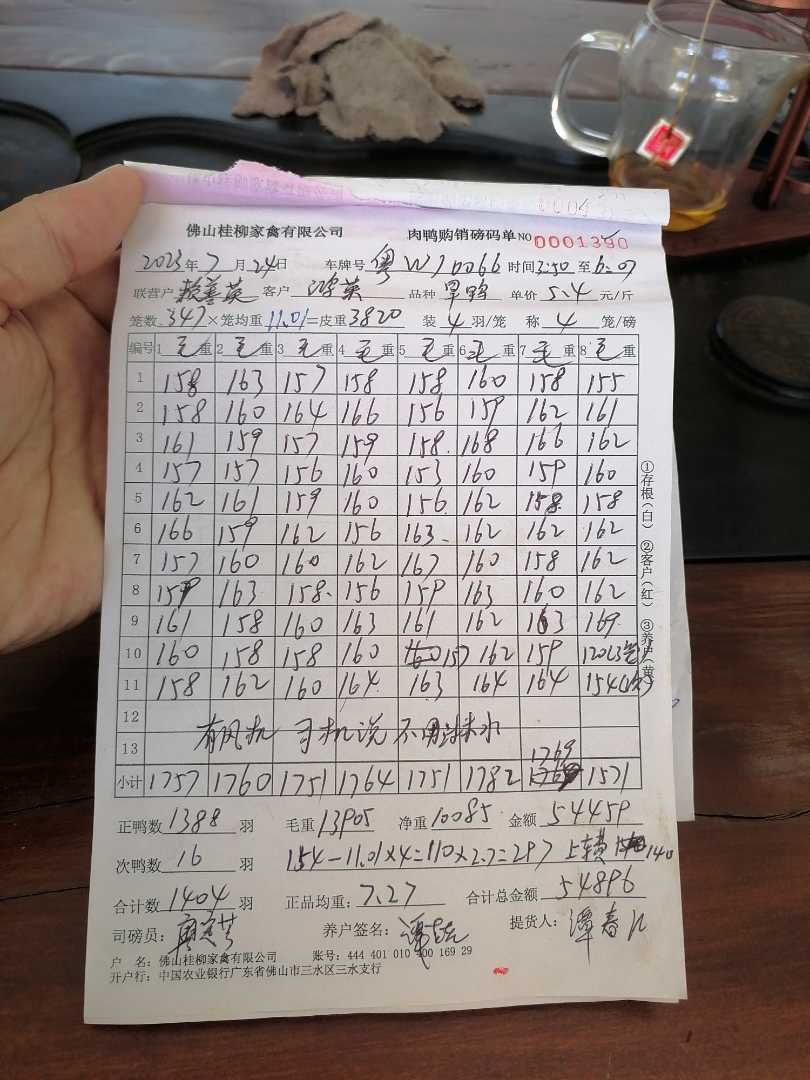 佛山桂柳家禽有限公司 肉鸭购销磅码单 NO 0001390
2023年7月24日 车牌号 粤W10066 时间3:50至6:07
联营户 赖善英 客户 鸿英 品种 旱鸭 单价 5.4 元/斤
笼数 347×笼均重 11.01=皮重3820 装 4 羽/笼 称 4 笼/磅
编号 1毛重 2毛重 3毛重 4毛重 5毛重 6毛重 7毛重 8毛重
1 158 163 157 158 158 160 158 155
2 158 160 164 166 156 159 162 161
3 161 159 157 159 158. 168 166 162
4 157 157 156 160 153 160 159 160
5 162 161 159 160 156. 162 158. 158
6 166 159 162 156 163. 162 162 162
7 157 160 160 162 167 160 158 162
8 159 163 158. 156 159 163 160 162
9 161 158 160 163 161 162 163 169.
10 160 158 158 160 160 157 162 159 120(3笼)
11 158 162 160 164. 163 164 164 154(次)
12
13 有风机 司机说不用过来水
小计 1757 1760 1751 1764 1751 1782 1769 1571
正鸭数 1388 羽 毛重 13905 净重 10085 金额 54459
次鸭数 16 羽 154-11.01×4=110×2.7=297 上车费 140
合计数 1404 羽 正品均重: 7.27 合计总金额 54896
司磅员: 养户签名: 提货人: 谭春
户 名: 佛山桂柳家禽有限公司 账号: 444 401 010 400 169 29
开户行: 中国农业银行广东省佛山市三水区三水支行
①存根(白) ②客户(红) ③养户(黄)